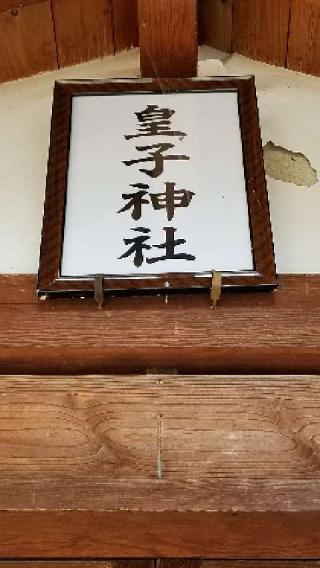 皇子神社